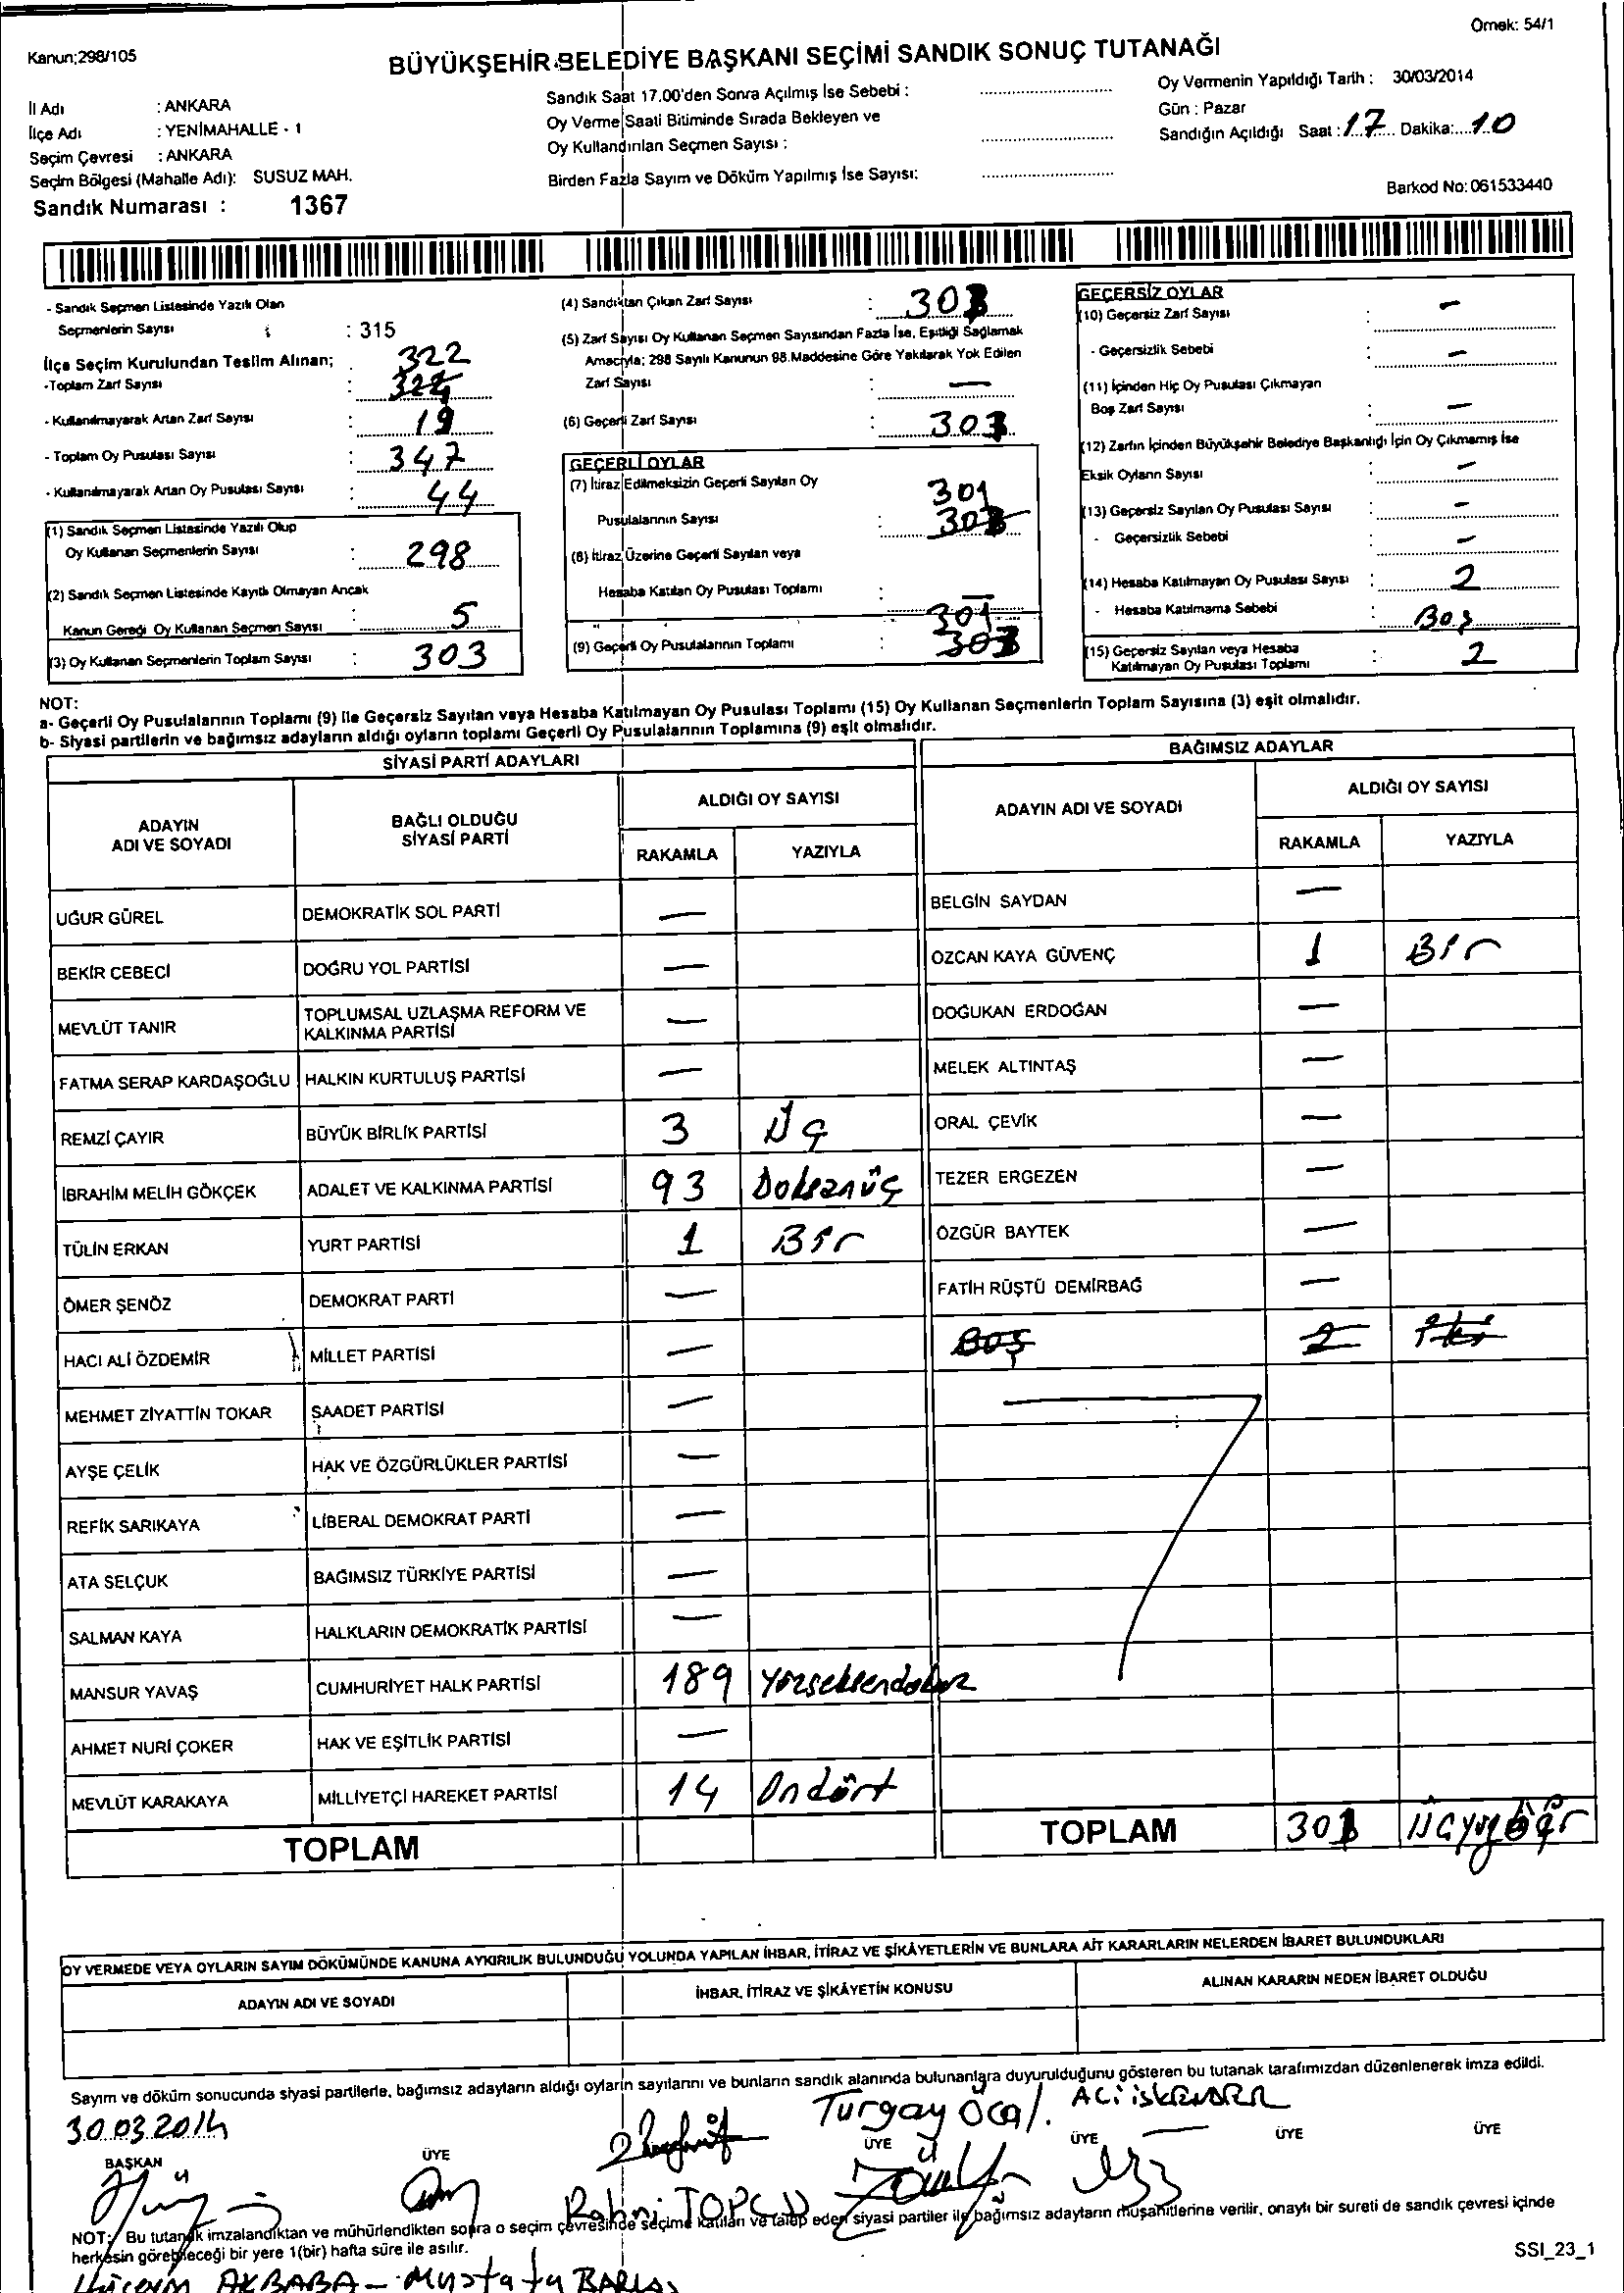 Örnek: 54/1
Kanun;298/105
BÜYÜKŞEHİR BELEDİYE BAŞKANI SEÇİMİ SANDIK SONUÇ TUTANAĞI
İl Adı : ANKARA
İlçe Adı : YENİMAHALLE - 1
Seçim Çevresi : ANKARA
Seçim Bölgesi (Mahalle Adı): SUSUZ MAH.
Sandık Numarası : 1367
Sandık Saat 17.00'den Sonra Açılmış İse Sebebi :
Oy Verme Saati Bitiminde Sırada Bekleyen ve
Oy Kullandırılan Seçmen Sayısı :
Birden Fazla Sayım ve Döküm Yapılmış İse Sayısı:
Oy Vermenin Yapıldığı Tarih : 30/03/2014
Gün : Pazar
Sandığın Açıldığı Saat : 17 Dakika: 10
Barkod No: 061533440
- Sandık Seçmen Listesinde Yazılı Olan
Seçmenlerin Sayısı : 315
İlçe Seçim Kurulundan Teslim Alınan;
322
-Toplam Zarf Sayısı :
- Kullanılmayarak Artan Zarf Sayısı : 19
- Toplam Oy Pusulası Sayısı : 347
- Kullanılmayarak Artan Oy Pusulası Sayısı : 44
(1) Sandık Seçmen Listesinde Yazılı Olup
Oy Kullanan Seçmenlerin Sayısı : 298
(2) Sandık Seçmen Listesinde Kayıtlı Olmayan Ancak
Kanun Gereği Oy Kullanan Seçmen Sayısı 5
(3) Oy Kullanan Seçmenlerin Toplam Sayısı : 303
(4) Sandıktan Çıkan Zarf Sayısı : 303
(5) Zarf Sayısı Oy Kullanan Seçmen Sayısından Fazla İse, Eşitliği Sağlamak
Amacıyla; 298 Sayılı Kanunun 98.Maddesine Göre Yakılarak Yok Edilen
Zarf Sayısı : —
(6) Geçerli Zarf Sayısı : 303
GEÇERLİ OYLAR
(7) İtiraz Edilmeksizin Geçerli Sayılan Oy
301
Pusulalarının Sayısı : 303
(8) İtiraz Üzerine Geçerli Sayılan veya
Hesaba Katılan Oy Pusulası Toplamı : —
301
(9) Geçerli Oy Pusulalarının Toplamı : 303
GEÇERSİZ OYLAR
(10) Geçersiz Zarf Sayısı : —
- Geçersizlik Sebebi : —
(11) İçinden Hiç Oy Pusulası Çıkmayan
Boş Zarf Sayısı : —
(12) Zarfın İçinden Büyükşehir Belediye Başkanlığı İçin Oy Çıkmamış İse
Eksik Oyların Sayısı : —
(13) Geçersiz Sayılan Oy Pusulası Sayısı : —
- Geçersizlik Sebebi : —
(14) Hesaba Katılmayan Oy Pusulası Sayısı : 2
- Hesaba Katılmama Sebebi : Boş
(15) Geçersiz Sayılan veya Hesaba
Katılmayan Oy Pusulası Toplamı : 2
NOT:
a- Geçerli Oy Pusulalarının Toplamı (9) ile Geçersiz Sayılan veya Hesaba Katılmayan Oy Pusulası Toplamı (15) Oy Kullanan Seçmenlerin Toplam Sayısına (3) eşit olmalıdır.
b- Siyasi partilerin ve bağımsız adayların aldığı oyların toplamı Geçerli Oy Pusulalarının Toplamına (9) eşit olmalıdır.
SİYASİ PARTİ ADAYLARI
ADAYIN ADI VE SOYADI BAĞLI OLDUĞU SİYASİ PARTİ ALDIĞI OY SAYISI
RAKAMLA YAZIYLA
UĞUR GÜREL DEMOKRATİK SOL PARTİ —
BEKİR CEBECİ DOĞRU YOL PARTİSİ —
MEVLÜT TANIR TOPLUMSAL UZLAŞMA REFORM VE KALKINMA PARTİSİ —
FATMA SERAP KARDAŞOĞLU HALKIN KURTULUŞ PARTİSİ —
REMZİ ÇAYIR BÜYÜK BİRLİK PARTİSİ 3 Üç
İBRAHİM MELİH GÖKÇEK ADALET VE KALKINMA PARTİSİ 93 Doksanüç
TÜLİN ERKAN YURT PARTİSİ 1 Bir
ÖMER ŞENÖZ DEMOKRAT PARTİ —
HACI ALİ ÖZDEMİR MİLLET PARTİSİ —
MEHMET ZİYATTİN TOKAR SAADET PARTİSİ —
AYŞE ÇELİK HAK VE ÖZGÜRLÜKLER PARTİSİ —
REFİK SARIKAYA LİBERAL DEMOKRAT PARTİ —
ATA SELÇUK BAĞIMSIZ TÜRKİYE PARTİSİ —
SALMAN KAYA HALKLARIN DEMOKRATİK PARTİSİ —
MANSUR YAVAŞ CUMHURİYET HALK PARTİSİ 189 Yüzseksendokuz
AHMET NURİ ÇOKER HAK VE EŞİTLİK PARTİSİ —
MEVLÜT KARAKAYA MİLLİYETÇİ HAREKET PARTİSİ 14 Ondört
TOPLAM
BAĞIMSIZ ADAYLAR
ADAYIN ADI VE SOYADI ALDIĞI OY SAYISI
RAKAMLA YAZIYLA
BELGİN SAYDAN —
ÖZCAN KAYA GÜVENÇ 1 Bir
DOĞUKAN ERDOĞAN —
MELEK ALTINTAŞ —
ORAL ÇEVİK —
TEZER ERGEZEN —
ÖZGÜR BAYTEK —
FATİH RÜŞTÜ DEMİRBAĞ —
BOŞ 2 İki
TOPLAM 301
OY VERMEDE VEYA OYLARIN SAYIM DÖKÜMÜNDE KANUNA AYKIRILIK BULUNDUĞU YOLUNDA YAPILAN İHBAR, İTİRAZ VE ŞİKÂYETLERİN VE BUNLARA AİT KARARLARIN NELERDEN İBARET BULUNDUKLARI
ADAYIN ADI VE SOYADI İHBAR, İTİRAZ VE ŞİKÂYETİN KONUSU ALINAN KARARIN NEDEN İBARET OLDUĞU
Sayım ve döküm sonucunda siyasi partilerle, bağımsız adayların aldığı oyların sayılarını ve bunların sandık alanında bulunanlara duyurulduğunu gösteren bu tutanak tarafımızdan düzenlenerek imza edildi.
30.03.2014 Turgay Öcal. ALİ İSKENDER
BAŞKAN ÜYE ÜYE ÜYE ÜYE ÜYE
Rahmi TOPCU
NOT: Bu tutanak imzalandıktan ve mühürlendikten sonra o seçim çevresinde seçime katılan ve talep eden siyasi partiler ile bağımsız adayların müşahitlerine verilir, onaylı bir sureti de sandık çevresi içinde
herkesin görebileceği bir yere 1(bir) hafta süre ile asılır.
SSI_23_1
AKBABA - Mustafa